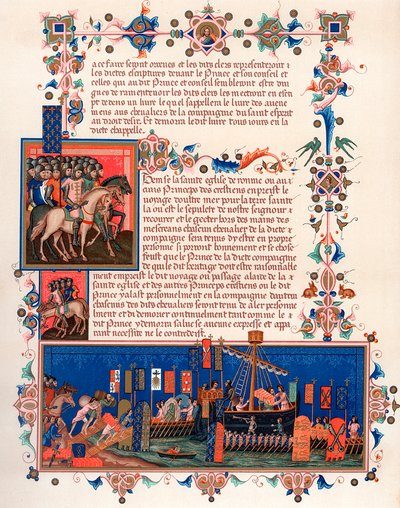 a ce faire seront ɛsleus et les dits clers representeront
les dictes escriptures devant le Prince et son conseil et
celles qui au dit Prince et conseil sembleront estre
de ramentevoir les dits clers les mectront en
un livre le quel sappellera le livre des
aus chevaliers de la compaignie du saint esprit
au droit desir. Et demorra le dit livre tous jours en la
dicte chappelle.
Item se la sainte eglise de romme ou
Princeps des crestiens enpreist le
voyage doultre mer pour la terre sainte
la ou est le sepulcre de nostre seignour
recovrer et le gecter hors des mains des
mescreans chascun chevalier de la dicte
compaignie sera tenus dy estre en propre
personne si porront bonnement et se chose
feust que le Prince de la dicte compaignie
de qui le dit heritage doit estre
ment empreist le dit voyage ou passage
sainte eglise et des autres Princeps crestiens ou le dit
Prince y alast personelment en la compaignie dautrui
chascuns des dits chevaliers seront tenu de aler personne
ment et di demorer continuelment tant comme le
dit Prince y demorra salve se aucune expresse et apa
rant necessite ne le contredeist.